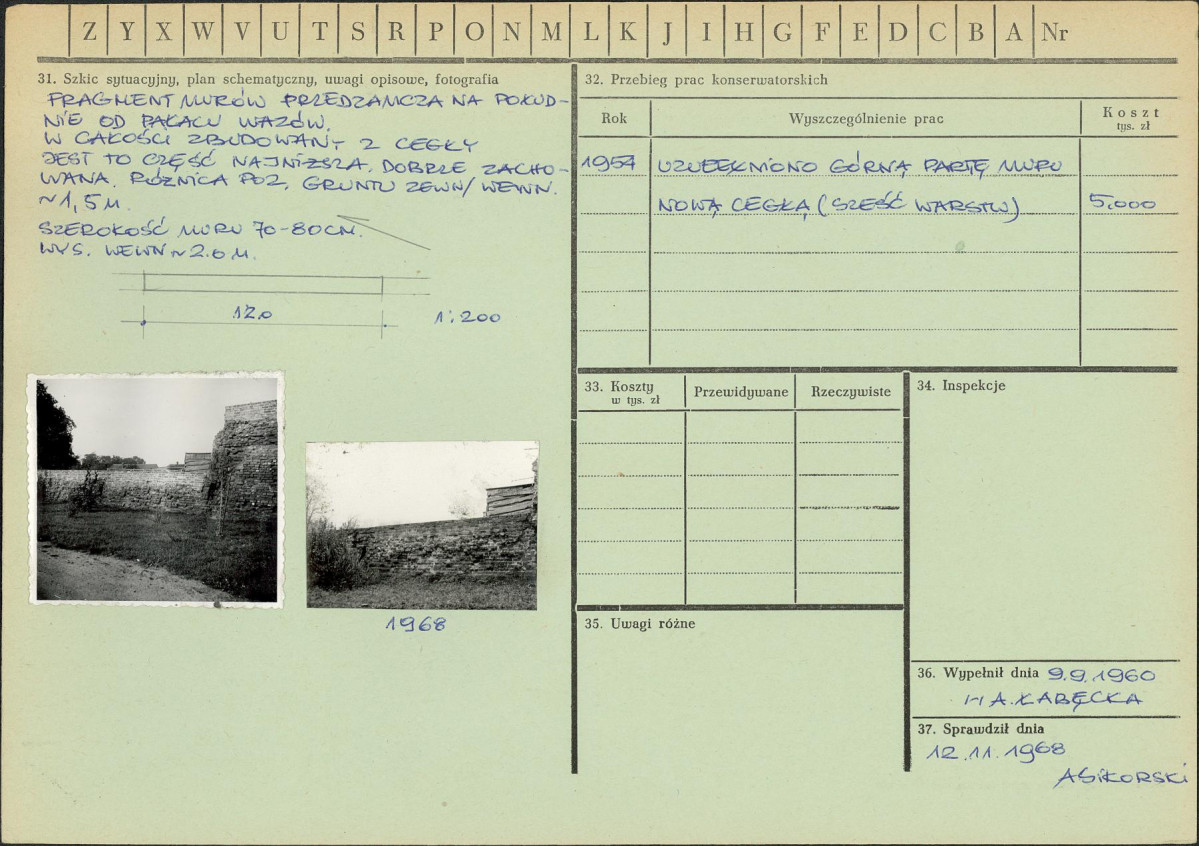 Z Y X W V U T S R P O N M L K J I H G F E D C B A Nr
31. Szkic sytuacyjny, plan schematyczny, uwagi opisowe, fotografia
FRAGMENT MURÓW PRZEDZAMCZA NA POŁUD-
NIE OD PAŁACU WAZÓW.
W CAŁOŚCI ZBUDOWANY Z CEGŁY
JEST TO CZĘŚĆ NAJNIŻSZA. DOBRZE ZACHO-
WANA. RÓŻNICA POZ. GRUNTU ZEWN/WEWN.
~1,5 M.
SZEROKOŚĆ MURU 70-80CM.
WYS. WEWN ~ 2.0 M.
12.0
1:200
1968
32. Przebieg prac konserwatorskich
Rok
Wyszczególnienie prac
Koszt
tys. zł
1954 UZUPEŁNIONO GÓRNĄ PARTĘ MURU
NOWĄ CEGŁĄ (SZEŚĆ WARSTW) 5.000
33. Koszty
w tys. zł
Przewidywane
Rzeczywiste
34. Inspekcje
35. Uwagi różne
36. Wypełnił dnia 9.9.1960
A. ŁABĘCKA
37. Sprawdził dnia
12.11.1968
ASIKORSKI